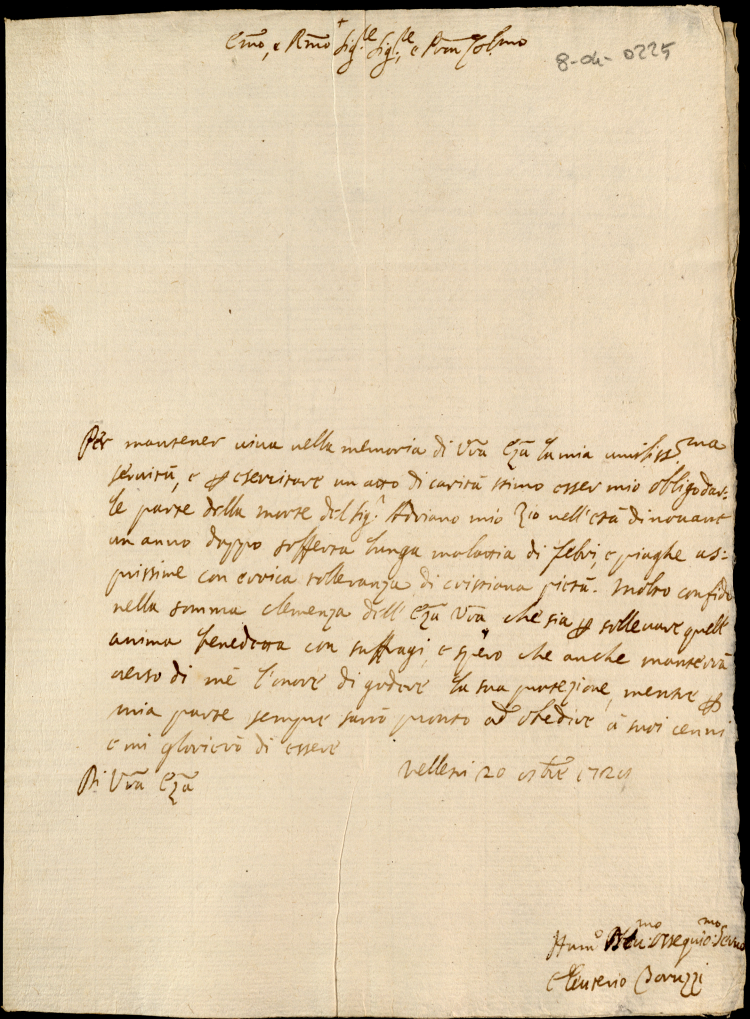 +
Emo, e Rmo Sigre Sigre, e Pron Colmo
8-04-0225
Per mantener viva nella memoria di Vrã Ezã la mia umilissma
servitù, e p esercitare un atto di carità stimo esser mio obligo dar-
le parte della morte del Sigr Adriano mio Zio nell'età di novant
un anno doppo sofferta lunga malatia di febri, e piaghe as-
prissime con eroica tolleranza, di cristiana pietà. Molto confido
nella somma clemenza dell' Ezã Vrã che sia p sollevare quell'
anima benedetta con suffragi, e spero che anche manterrà
verso di mè l'onore di godere la sua protezione, mentre p
mia parte sempre sarò pronto ad obedire à suoi cenni
e mi glorierò di essere
Di Vrã Ezã
Velletri 20 ottbre
Humo mo Ossequiomo Servo
Eleuterio Boruzzi